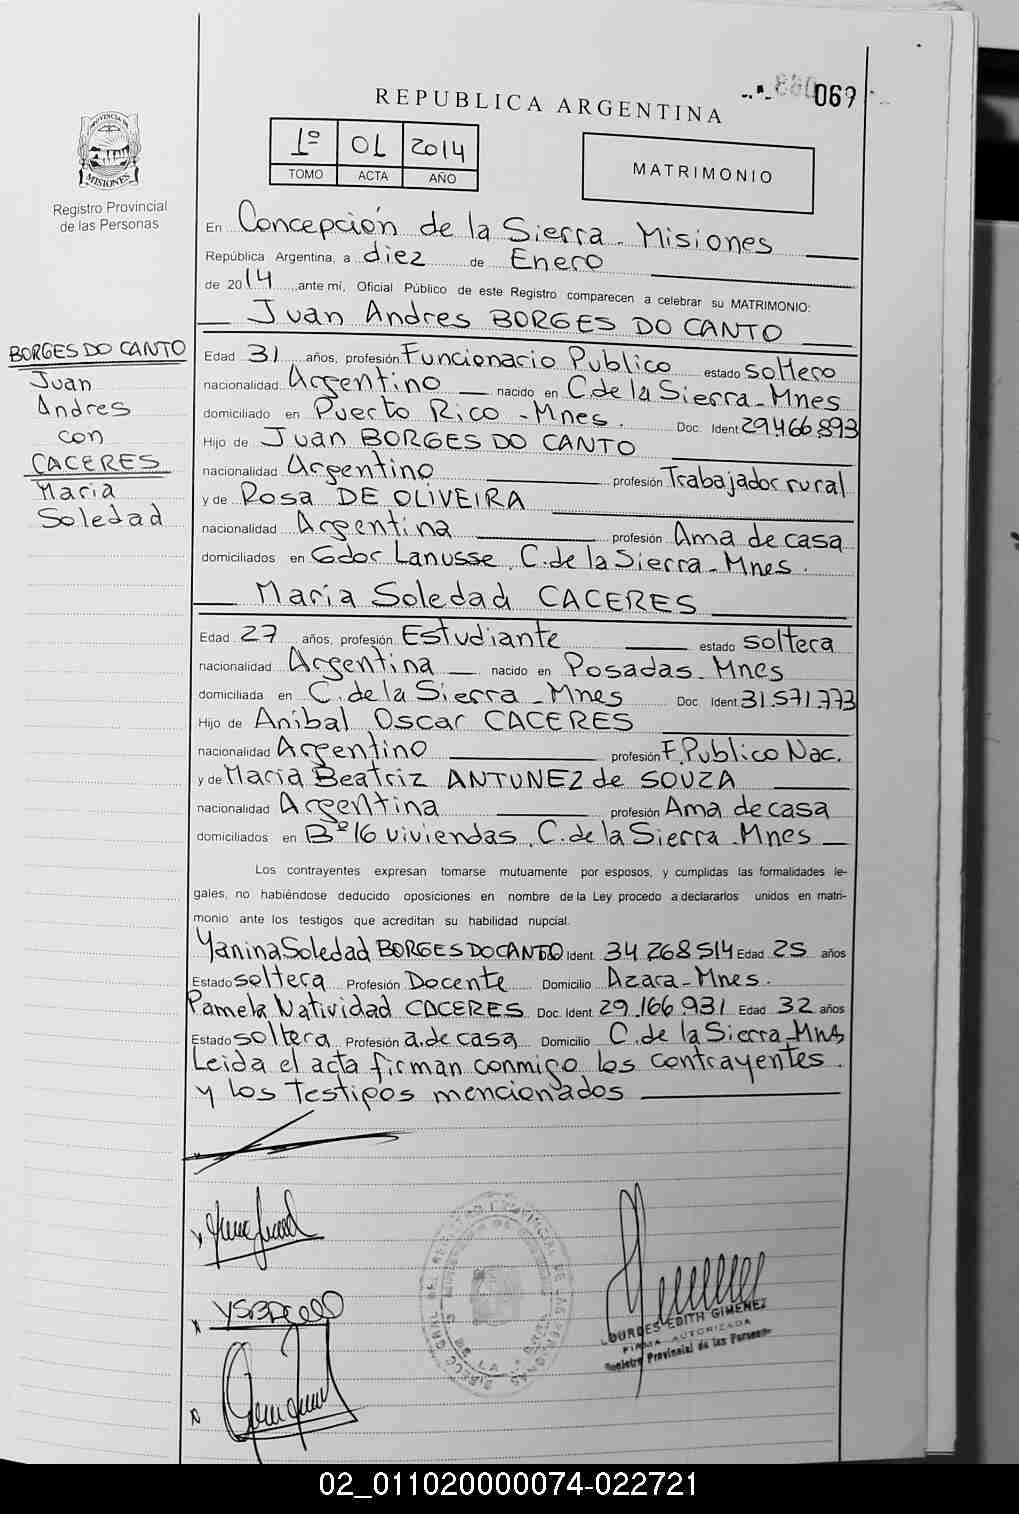 069
REPUBLICA ARGENTINA
1º 01 2014
TOMO ACTA AÑO
MATRIMONIO
PROVINCIA DE
MISIONES
Registro Provincial
de las Personas
En Concepción de la Sierra - Misiones
República Argentina, a diez de Enero
de 2014 ante mí, Oficial Público de este Registro comparecen a celebrar su MATRIMONIO:
Juan Andres BORGES DO CANTO
BORGES DO CANTO
Juan
Andres
con
CACERES
Maria
Soledad
Edad 31 años, profesión Funcionario Publico estado soltero
nacionalidad Argentino nacido en C. de la Sierra - Mnes
domiciliado en Puerto Rico - Mnes. Doc. Ident 29.466.893
Hijo de Juan BORGES DO CANTO
nacionalidad Argentino profesión Trabajador rural
y de Rosa DE OLIVEIRA
nacionalidad Argentina profesión Ama de casa
domiciliados en Gdor Lanusse, C. de la Sierra - Mnes.
Maria Soledad CACERES
Edad 27 años, profesión Estudiante estado soltera
nacionalidad Argentina nacido en Posadas - Mnes
domiciliada en C. de la Sierra - Mnes Doc. Ident 31.571.773
Hijo de Anibal Oscar CACERES
nacionalidad Argentino profesión F. Publico Nac.
y de Maria Beatriz ANTUNEZ de SOUZA
nacionalidad Argentina profesión Ama de casa
domiciliados en Bº 16 viviendas, C. de la Sierra - Mnes
Los contrayentes expresan tomarse mutuamente por esposos, y cumplidas las formalidades le-
gales, no habiéndose deducido oposiciones en nombre de la Ley procedo a declararlos unidos en matri-
monio ante los testigos que acreditan su habilidad nupcial.
Yanina Soledad BORGES DO CANTO Ident. 34.268.514 Edad 25 años
Estado soltera Profesión Docente Domicilio Azara - Mnes.
Pamela Natividad CACERES Doc. Ident. 29.166.931 Edad 32 años
Estado soltera Profesión a. de casa Domicilio C. de la Sierra - Mnes
Leida el acta firman conmigo los contrayentes
y los testigos mencionados
LOURDES EDITH GIMENEZ
FIRMA AUTORIZADA
Registro Provincial de las Personas
02_011020000074-022721